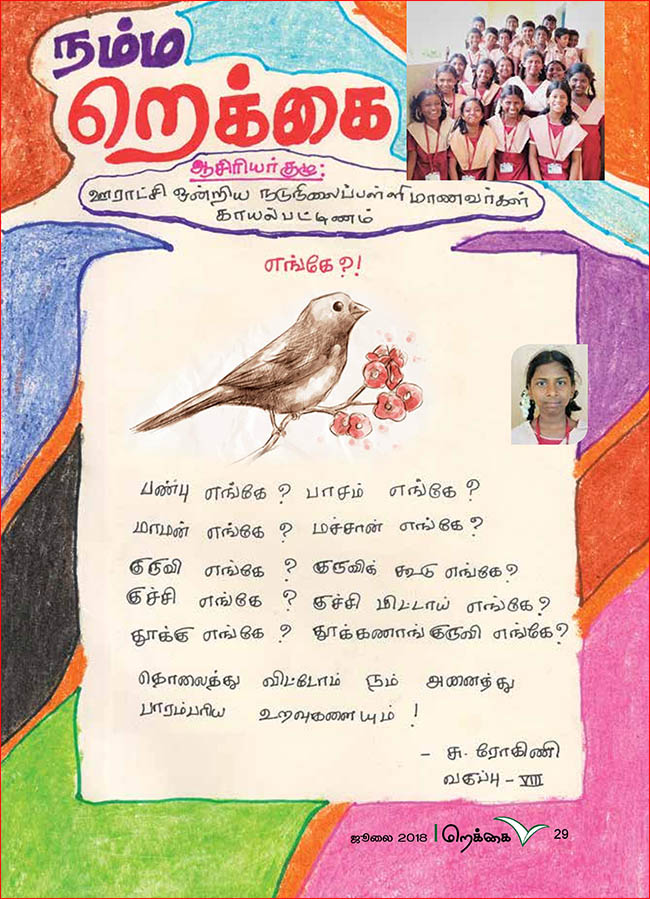 நம்ம
றெக்கை
ஆசிரியர் குழு:
ஊராட்சி ஒன்றிய நடுநிலைப்பள்ளி மாணவர்கள்
காயல்பட்டிணம்
எங்கே?!
பண்பு எங்கே? பாசம் எங்கே?
மாமன் எங்கே? மச்சான் எங்கே?
குருவி எங்கே? குருவிக் கூடு எங்கே?
குச்சி எங்கே? குச்சி மிட்டாய் எங்கே?
தூக்கு எங்கே? தூக்கணாங் குருவி எங்கே?
தொலைத்து விட்டோம் நம் அனைத்து
பாரம்பரிய உறவுகளையும்!
- சு. ரோகிணி
வகுப்பு - VIII
ஜூலை 2018 | றெக்கை 29